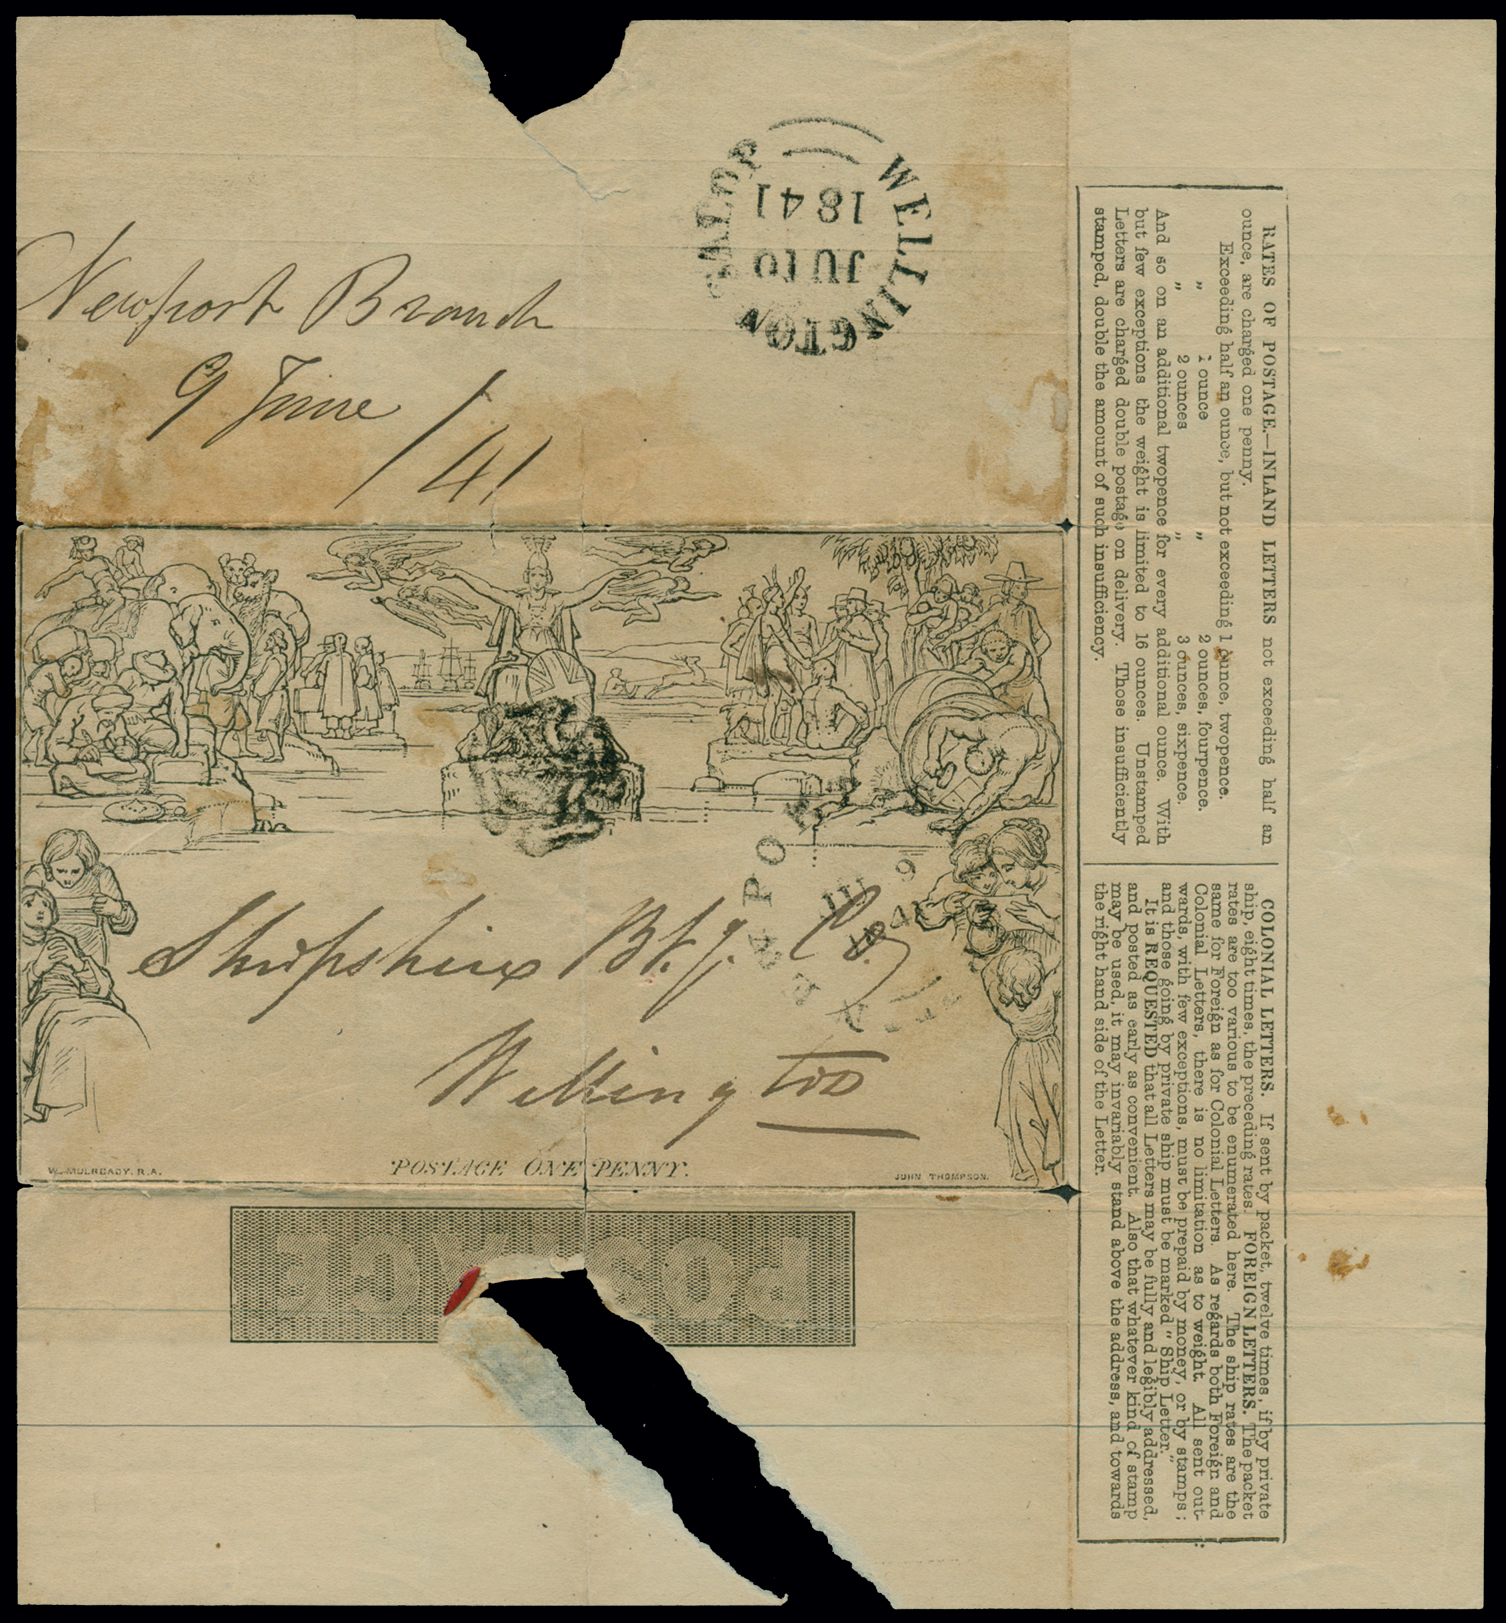 WELLINGTON SALOP
JU 10
1841
Newport Branch
9 June / 41
NEWPORT SALOP
JU 9
1841
Shropshire Bkg. Co.
Wellington
W. MULREADY. R.A.
POSTAGE ONE PENNY.
JOHN THOMPSON.
POSTAGE
RATES OF POSTAGE.—INLAND LETTERS not exceeding half an
ounce, are charged one penny.
Exceeding half an ounce, but not exceeding 1 ounce, twopence.
„ 1 ounce „ 2 ounces, fourpence.
„ 2 ounces „ 3 ounces, sixpence.
And so on an additional twopence for every additional ounce. With
but few exceptions the weight is limited to 16 ounces. Unstamped
Letters are charged double postage on delivery. Those insufficiently
stamped, double the amount of such insufficiency.
COLONIAL LETTERS. If sent by packet, twelve times, if by private
ship, eight times, the preceding rates. FOREIGN LETTERS. The packet
rates are too various to be enumerated here. The ship rates are the
same for Foreign as for Colonial Letters. As regards both Foreign and
Colonial Letters, there is no limitation as to weight. All sent out-
wards, with few exceptions, must be prepaid by money, or by stamps;
and those going by private ship must be marked "Ship Letter."
It is REQUESTED that all Letters may be fully and legibly addressed,
and posted as early as convenient. Also that whatever kind of stamp
may be used, it may invariably stand above the address, and towards
the right hand side of the Letter.